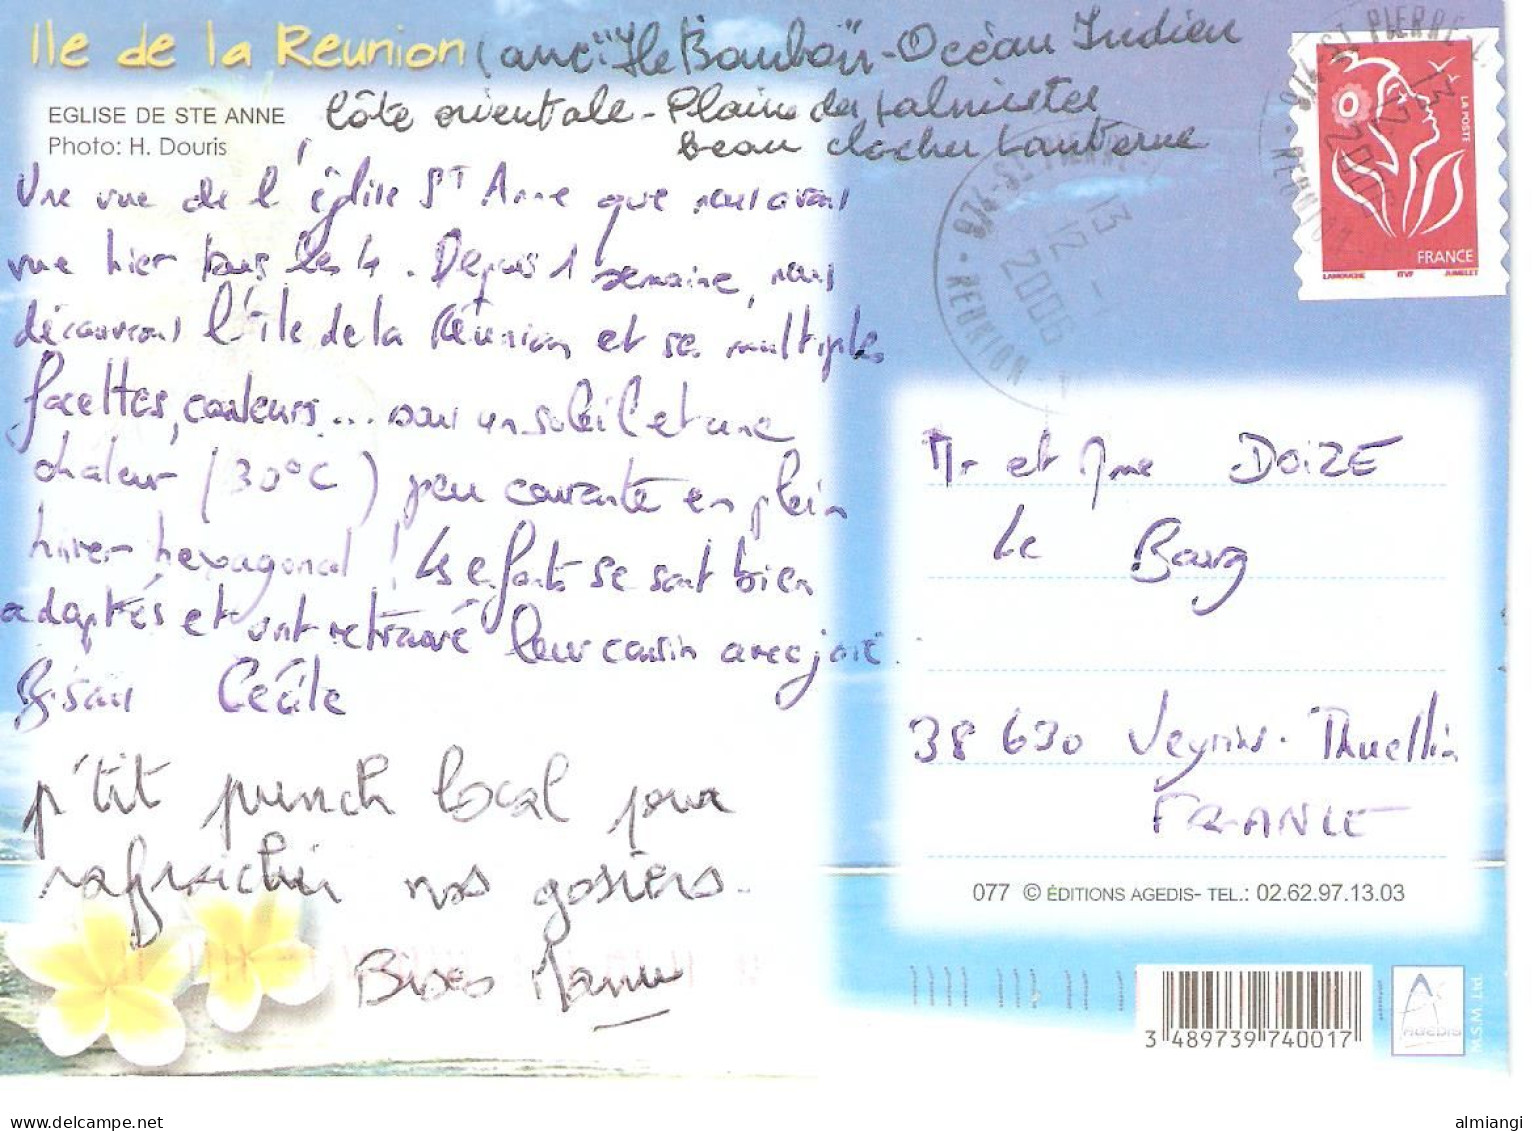 Ile de la Reunion (anc. "Ile Bourbon" - Océan Indien
EGLISE DE STE ANNE
Côte orientale - Plaine des palmistes
Photo: H. Douris
beau clocher lanterne
Une vue de l'église St Anne que nous avons
vue hier tous les 4. Depuis 1 semaine, nous
découvrons l'île de la Réunion et ses multiples
facettes, couleurs... sous un soleil et une
chaleur (30°C) peu courante en plein
hiver hexagonal ! Les enfants se sont bien
adaptés et ont retrouvé leur cousin avec joie.
Bisous Cécile
p'tit punch local pour
rafraichir nos gosiers.
Bises Manu
LA POSTE
FRANCE
LAMOUCHE ITVF JUMELET
974-ST PIERRE
13-12-2006
REUNION
974-ST PIERRE
13-12-2006
REUNION
Mr et Mme DOIZE
Le Bourg
38 630 Veyrins-Thuellin
FRANCE
077 © ÉDITIONS AGEDIS- TEL.: 02.62.97.13.03
3 489739 740017
AGEDIS
INT. W.S.M
delcampe.net
almiangi